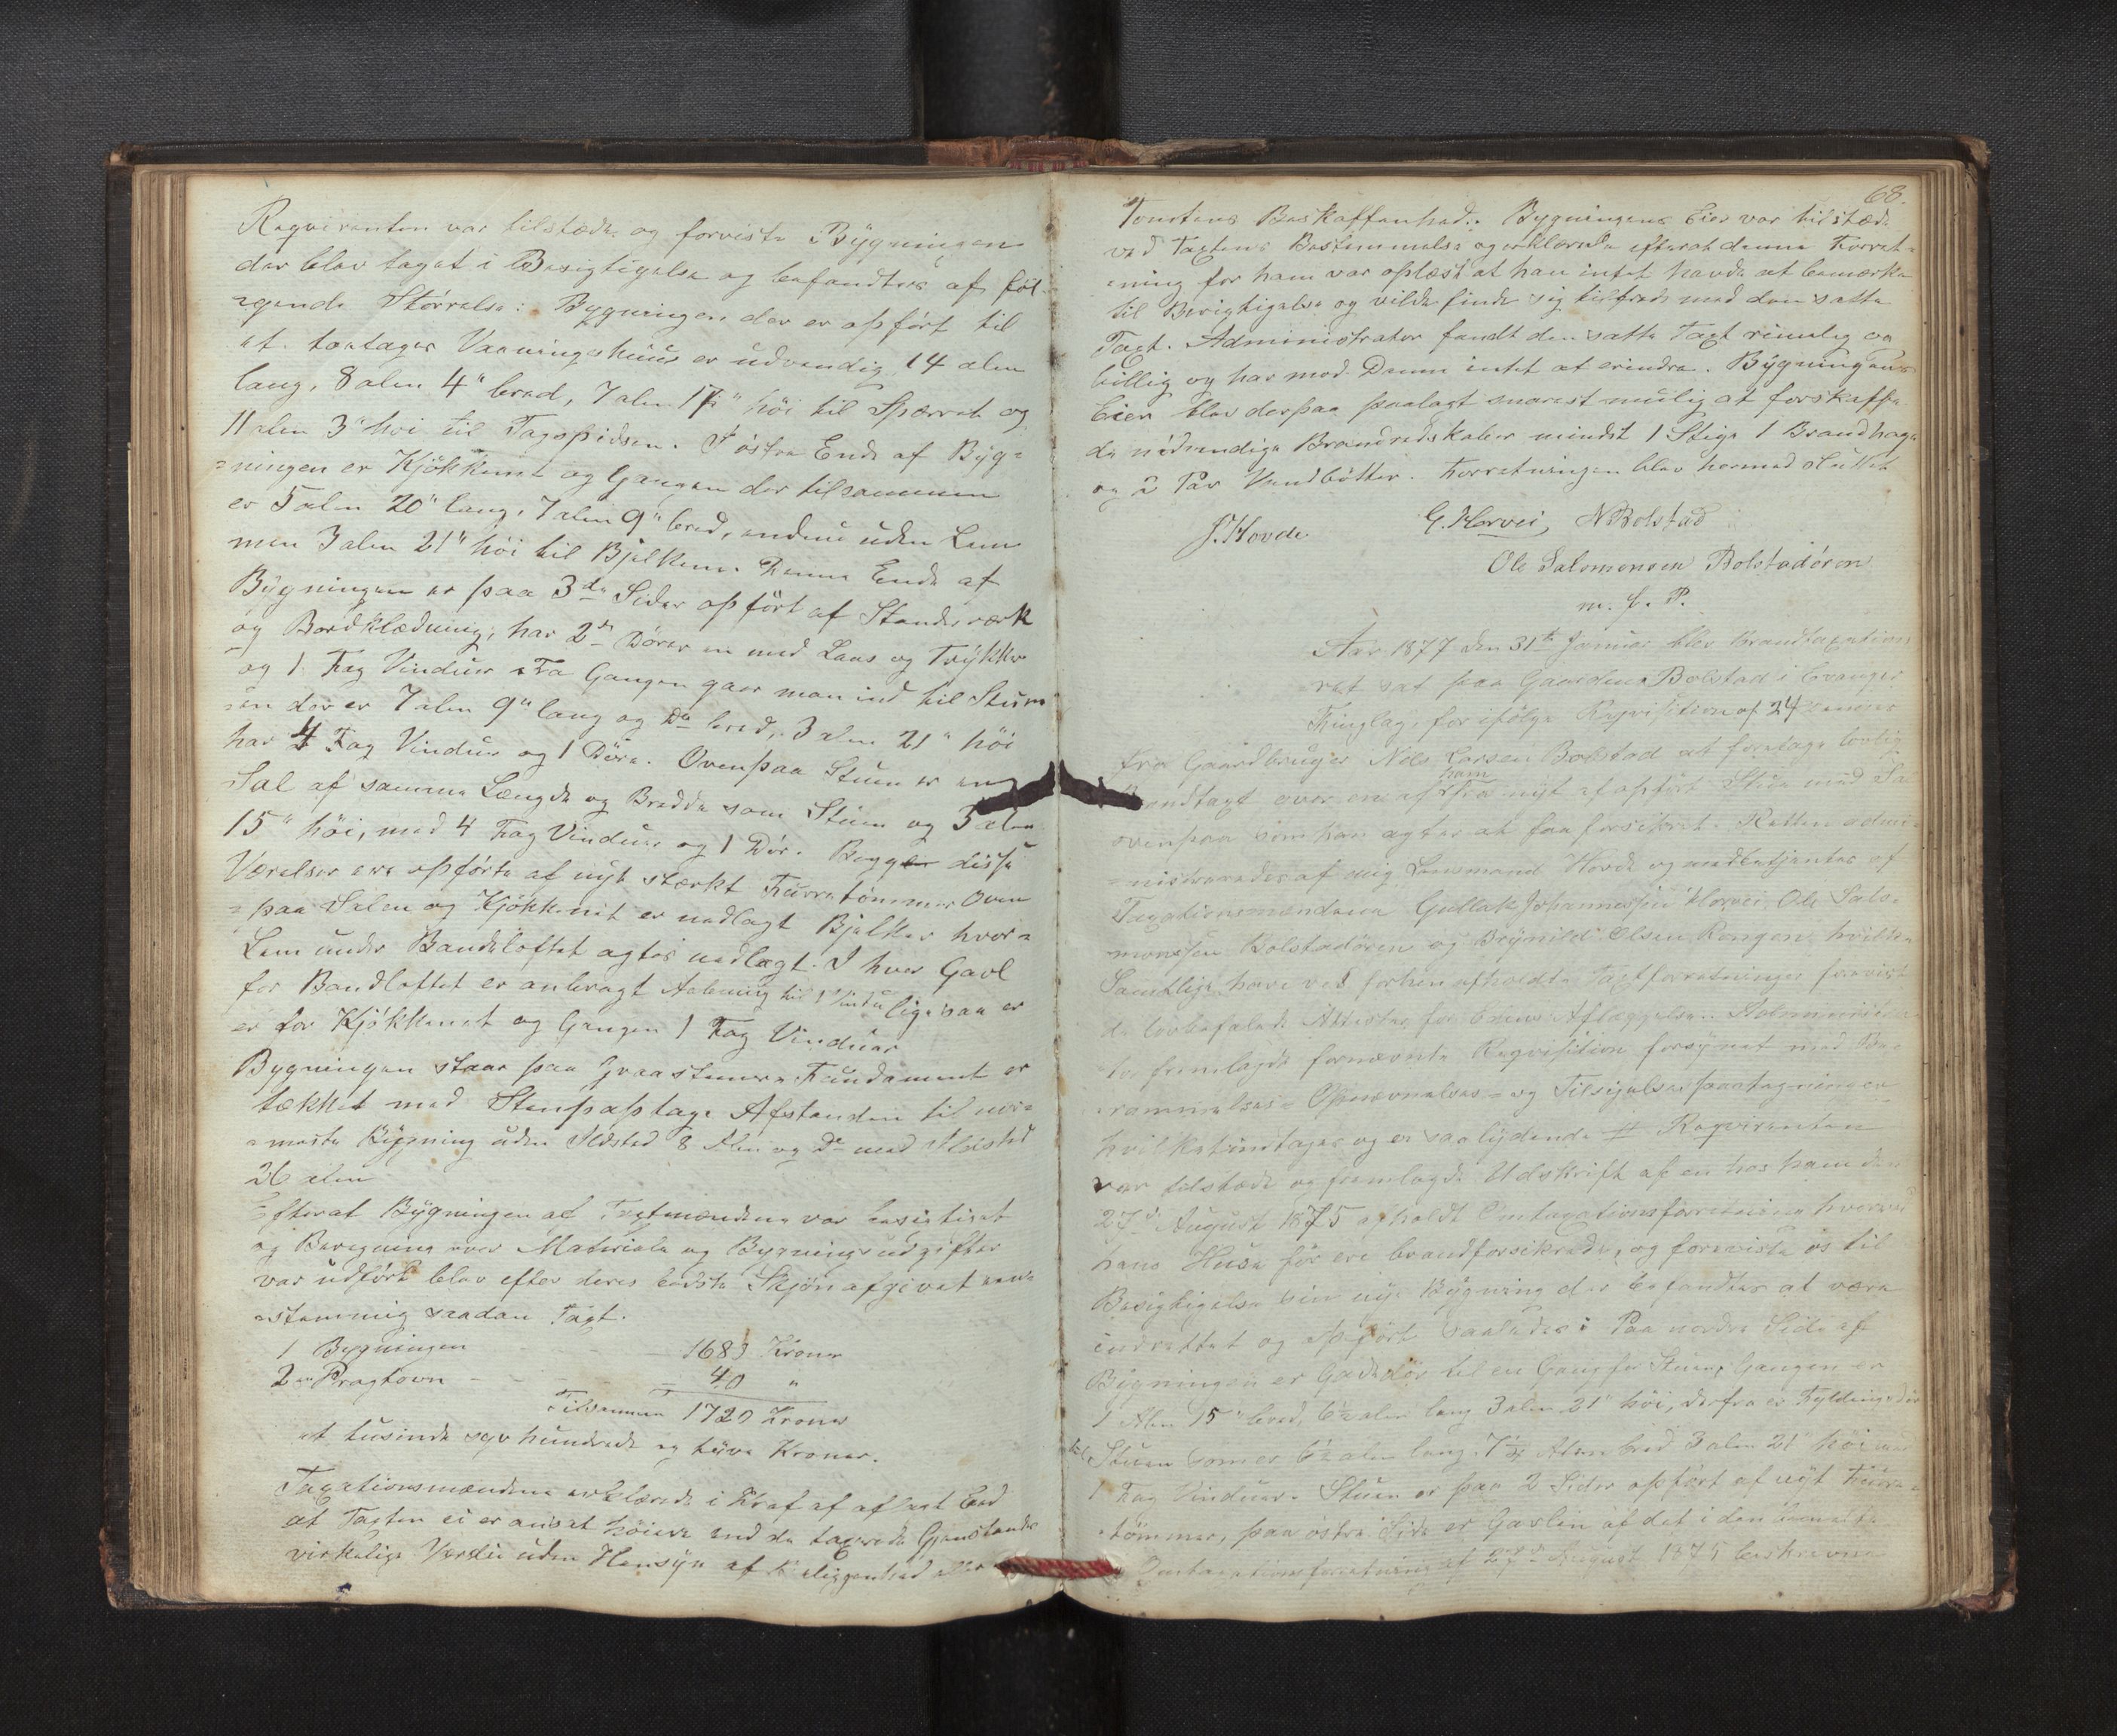 Reqvirenten var tilstæde og forviste Bygningen
der blev taget i Besigtigelse og befandtes af føl-
gende Størrelse: Bygningen der er opført til
et toetages Vaaningshuus er udvendig 14 alen
lang, 8 alen 4" bred, 7 alen 17" høi til Spærret og
11 alen 3" høi til Tagspidsen. I østre Ende af Byg-
=ningen er Kjøkkenet og Gangen der tilsammen
er 5 alen 20" lang, 7 alen 9" bred, endnu uden Lem
men 3 alen 21" høi til Bjelken. Denne Ende af
Bygningen er paa 3de Sider opført af Standværk
og Bordklædning, har 2de Dører en med Laas og Trykker
og 1 Fag Vinduer. Fra Gangen gaar man ind til Stuen
der er 7 alen 9" lang og Do bred, 3 alen 21" høi
har 4 Fag Vinduer og 1 Døre. Ovenpaa Stuen er en
Sal af samme Længde og Bredde som Stuen og 3 alen
15" høi, med 4 Fag Vinduer og 1 Dør. Begge disse
Værelser ere opførte af nyt stærkt Furretømmer. Oven
=paa Salen og Kjøkkenet er nedlagt Bjelker hvor=
Lem under Bandeloftet agtes nedlagt. I hver Gavl
for Bandloftet er anbragt Aabning til 1 Vindu ligesaa er
er for Kjøkkenet og Gangen 1 Fag Vinduer
Bygningen staar paa Graasteens Fundament er
tækket med Steenpaptag. Afstanden til nær=
=meste Bygning uden Ildsted 8 Alen og Do med Ildsted
26 alen
Efterat Bygningen af Taxtmændene var besigtiget
og Beregning over Materiale og Bygningsudgifter
var udført blev efter deres bedste Skjøn afgivet een=
=stemmig saadan Taxt.
1 Bygningen - - - 1680 Kroner
2 en Pragtovn - - - 40 "
Tilsammen 1720 Kroner
et tusinde syv hundrede og tyve Kroner.
Taxationsmændene erklærede i Kraft af aflagt Eed
at Taxten ei er ansat høiere end de taxerede Gjenstandes
virkelige Værdie uden Hensyn af Beliggenhed eller
68.
Tomtens Beskaffenhed. Bygningens Eier var tilstæde
ved Taxtens Bestemmelse og erklærede efterat denne Forret=
=ning for ham var oplæst at han intet havde at bemærke
til Berigtigelse og vilde finde sig tilfreds med den satte
Taxt. Administrator fandt den satte Taxt rimelig og
billig og har mod Denne intet at erindre. Bygningens
Eier blev derpaa paalagt snarest mulig at forskaffe
de nødvendige Brandredskaber mindst 1 Stige 1 Brandhage
og 2 Par Vandbøtter. Forretningen blev hermed sluttet
J. Hovde G. Horvei, N Bolstad
Ole Salomonsen Bolstadøren
m. p. P.
Aar 1877 den 31te Januar blev Brandtaxation
ret sat paa Gaarden Bolstad i Evanger
Thinglag, for ifølge Reqvisition af 24 Januar
fra Gaardbruger Nils Larsen Bolstad at foretage lovlig
Brandtaxt over en af ham nyt opført Stue med Sal
ovenpaa som han agter at faa forsikret. Retten admi=
=nistreredes af mig Lensmand Hovde og medbetjentes af
Taxationsmændene Gullak Johannessen Horvei, Ole Salo=
monsen Bolstadøren og Brynild Olsen Rongen hvilke
Samtlige have ved forhen afholdte Taxtforretninger forevist
de lovbefalede Attester for Edens Aflæggelse. Administra=
tor fremlagde fornævnte Reqvisition forsynet med Be=
=rammelses= Opnævnelses= og Tilsigelsespaategninger
hvilket indtages og er saa lydende # Reqvirenten
var tilstæde og fremlagde Udskrift af en hos ham den
27de August 1875 afholdt Omtaxationsforretning hvorved
hans Huse før ere brandforsikrede, og foreviste os til
Besigtigelse sin nye Bygning der befandtes at være
indrettet og opført saaledes: Paa nordre Side af
Bygningen er Gadedør til en Gang for Stuen, Gangen er
1 Alen 15" bred, 6½ alen lang 3 alen 21" høi, derfra er Fyldingsdør
til Stuen som er 6½ alen lang 7¼ Alen bred 3 alen 21" høi med
1 Fag Vinduer. Stuen er paa 2 Sider opført af nyt Furre=
=tømmer, paa østre Side er Gavlen af det i den
Omtaxationsforretning af 27de August 1875 beskrevne